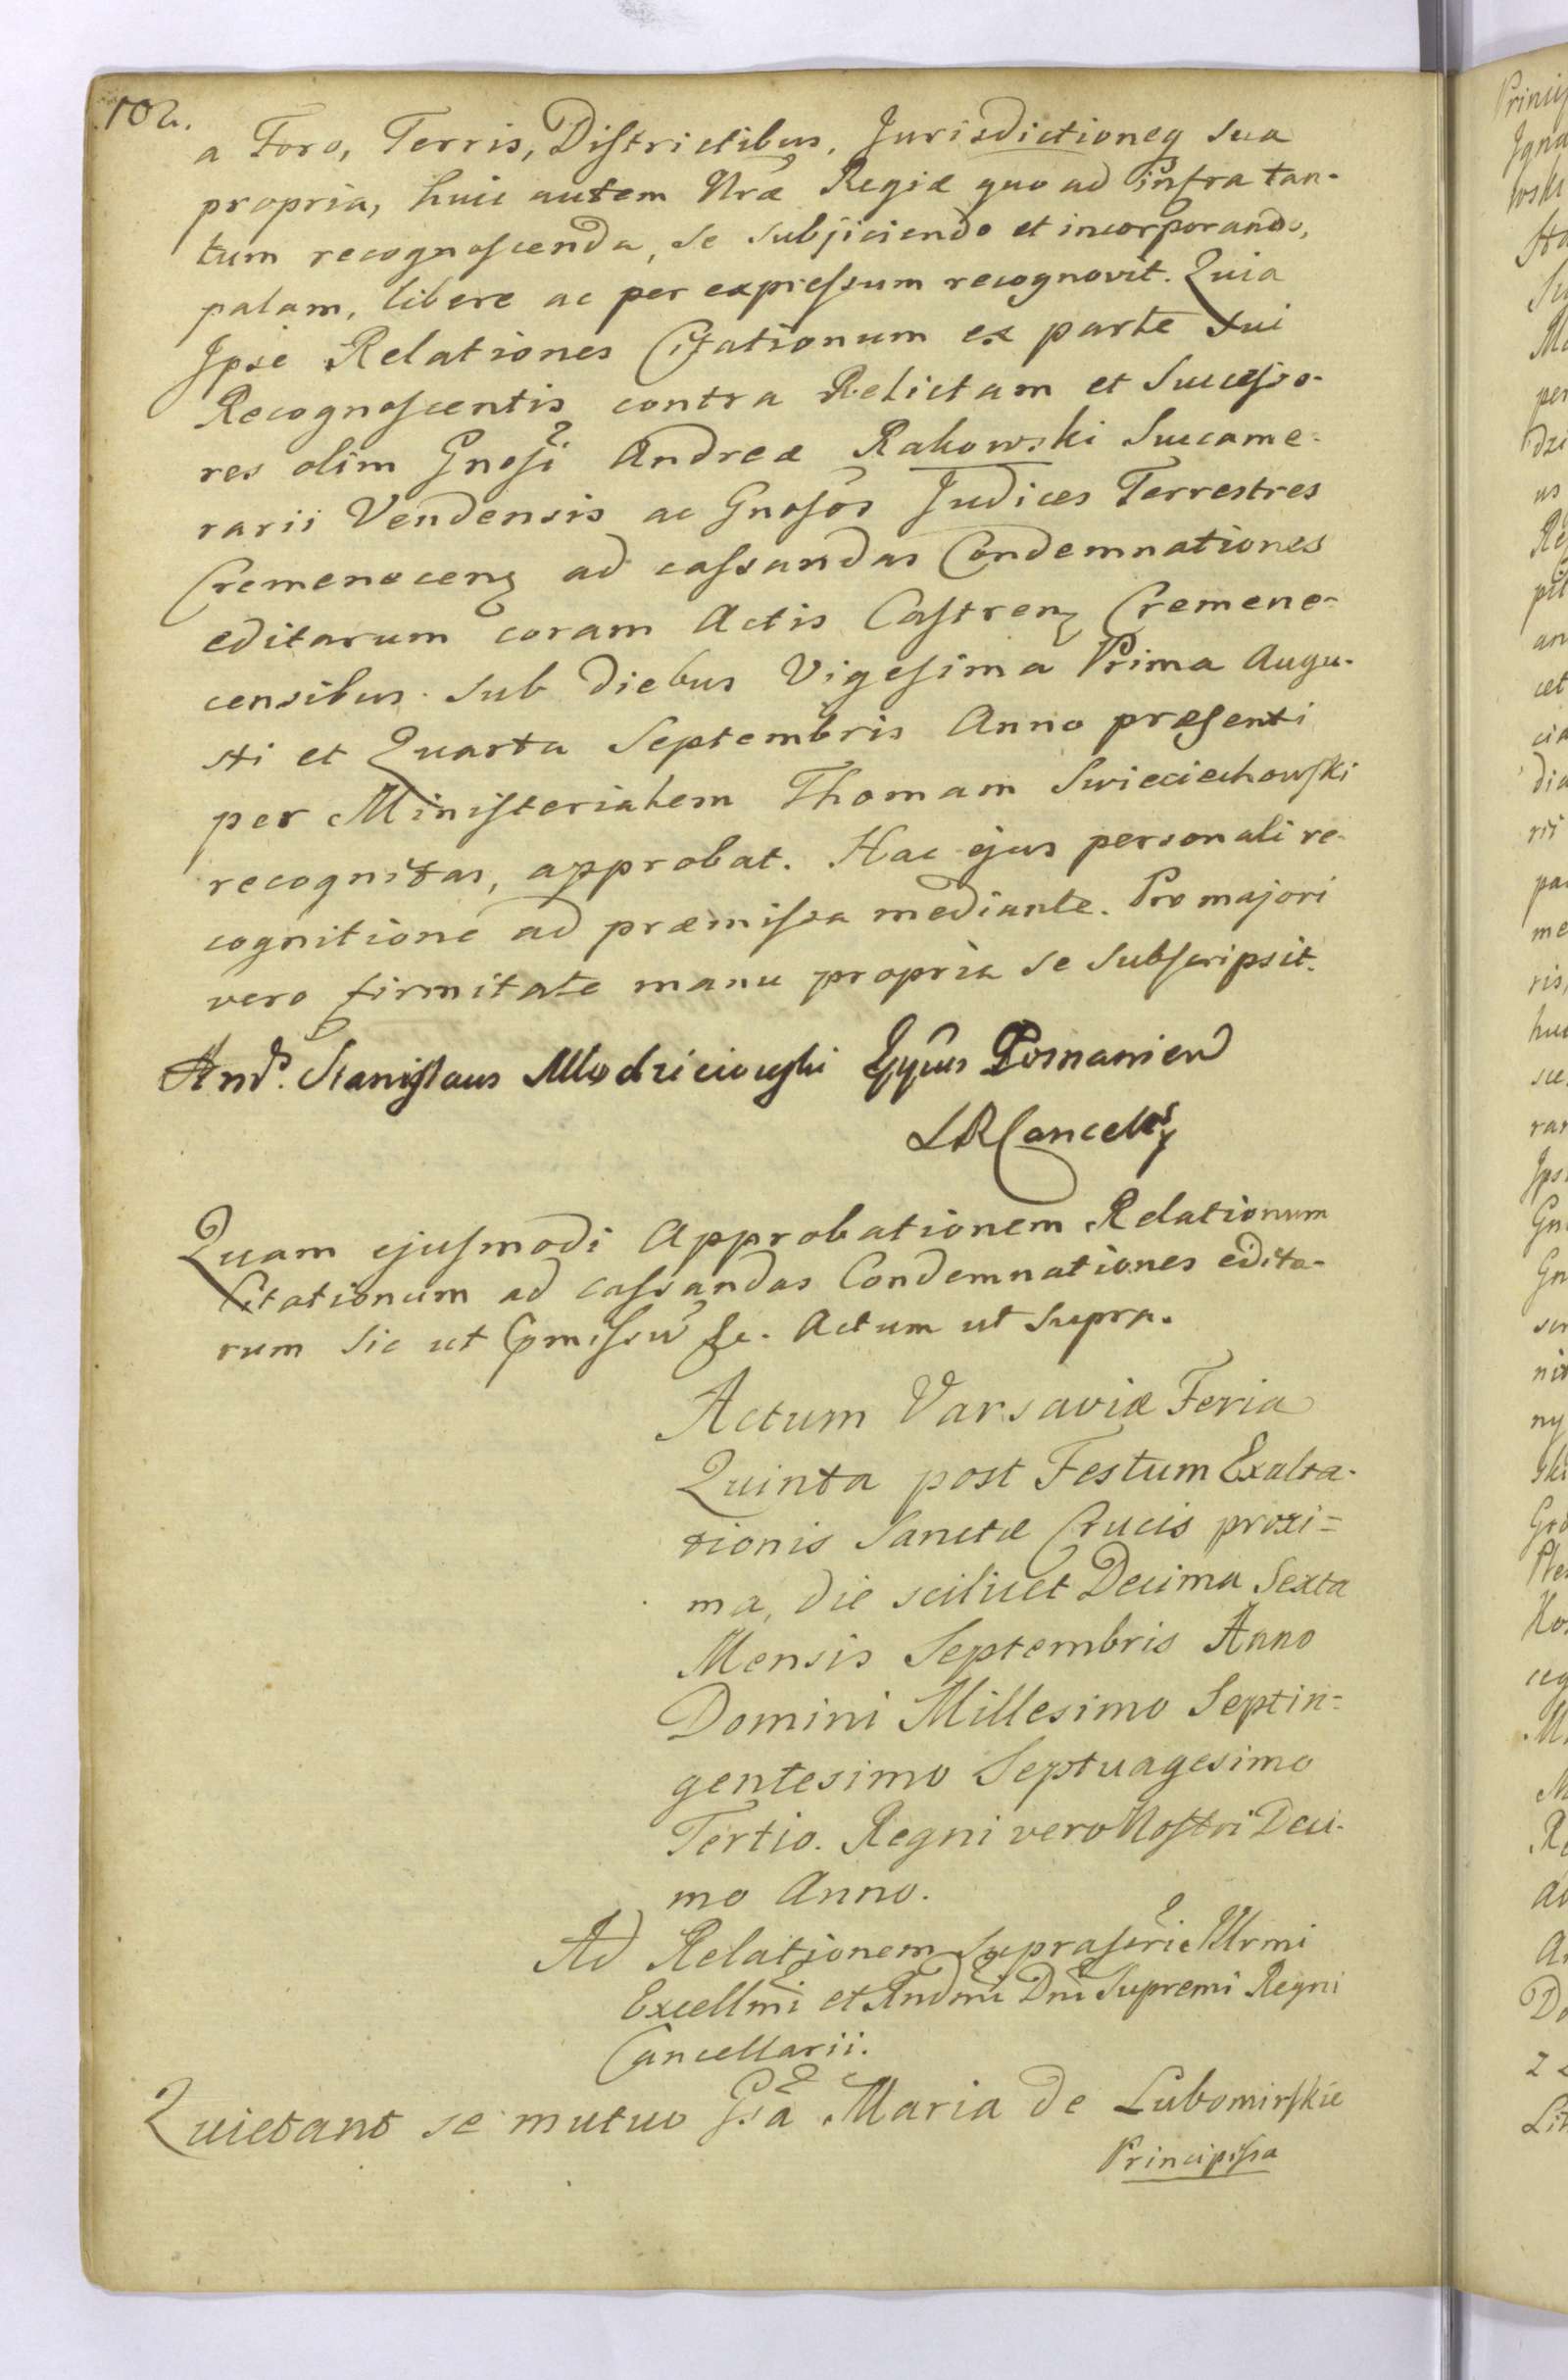 102.
a Foro, Terris, Districtibus, Jurisdictioneq sua
propria, huic autem Nræ Regiæ quo ad infra tan-
tum recognoscenda, se subjiciendo et incorporando,
palam, libere ac per expressum recognovit. Quia
Ipse Relationes Citationum ex parte sui
Recognoscentis contra Relictam et Successo-
res olim Gnosi Andreæ Rakowski Succame-
rarii Vendensis ac Gnosos Judices Terrestres
Cremenecenq ad cassandas Condemnationes
editarum coram Actis Castrenq Cremene-
censibus sub diebus Vigesima Prima Augu-
sti et Quarta Septembris Anno præsenti
per Ministerialem Thomam Swieciechowski
recognitas, approbat. Hac ejus personali re-
cognitione ad præmissa mediante. Pro majori
vero firmitate manu propria se subscripsit.
Andr. Stanislaus Młodzieiowski Eppus Posnanien
S R Cancell
Quam ejusmodi Approbationem Relationum
Citationum ad cassandas Condemnationes edita-
rum sic ut pmissū &c. Actum ut supra.
Actum Varsaviæ Feria
Quinta post Festum Exalta-
tionis Sanctæ Crucis proxi=
ma, die scilicet Decima Sexta
Mensis Septembris Anno
Domini Millesimo Septin=
gentesimo Septuagesimo
Tertio. Regni vero Nostri Deci-
mo Anno.
Ad Relationem suprascri Illrmi
Excellmi et Rndmi Dni Supremi Regni
Cancellarii.
Quietant se mutuo Gsa Maria de Lubomirskie
Principissa